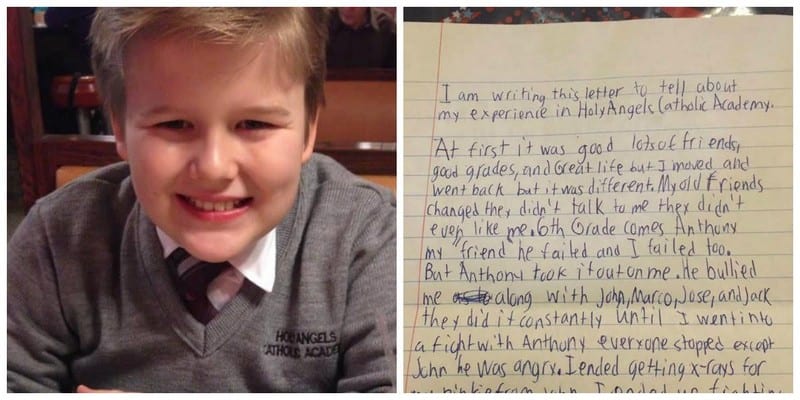 HOLY ANGELS
CATHOLIC ACADE
I am writing this letter to tell about
my experience in Holy Angels Catholic Academy.
At first it was good lots of friends,
good grades, and Great life but I moved and
went back but it was different. My old friends
changed they didn't talk to me they didn't
even like me. 6th Grade comes Anthony
my "friend" he failed and I failed too.
But Anthony took it out on me. He bullied
me along with John, Marco, Jose, and Jack
they did it constantly until I went into
a fight with Anthony everyone stopped except
John he was angry. I ended getting x-rays for
my pinkie from John I ended up fighting